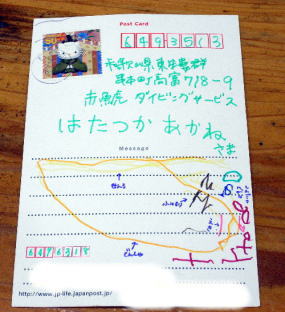 Post Card
649-3513
和歌山県東牟婁群
串本町高富718-9
赤魚虎 ダイビングサービス
はたつか あかね
さま
Message
せんろ
でんしゃ
6476318
http://www.jp-life.japanpost.jp/